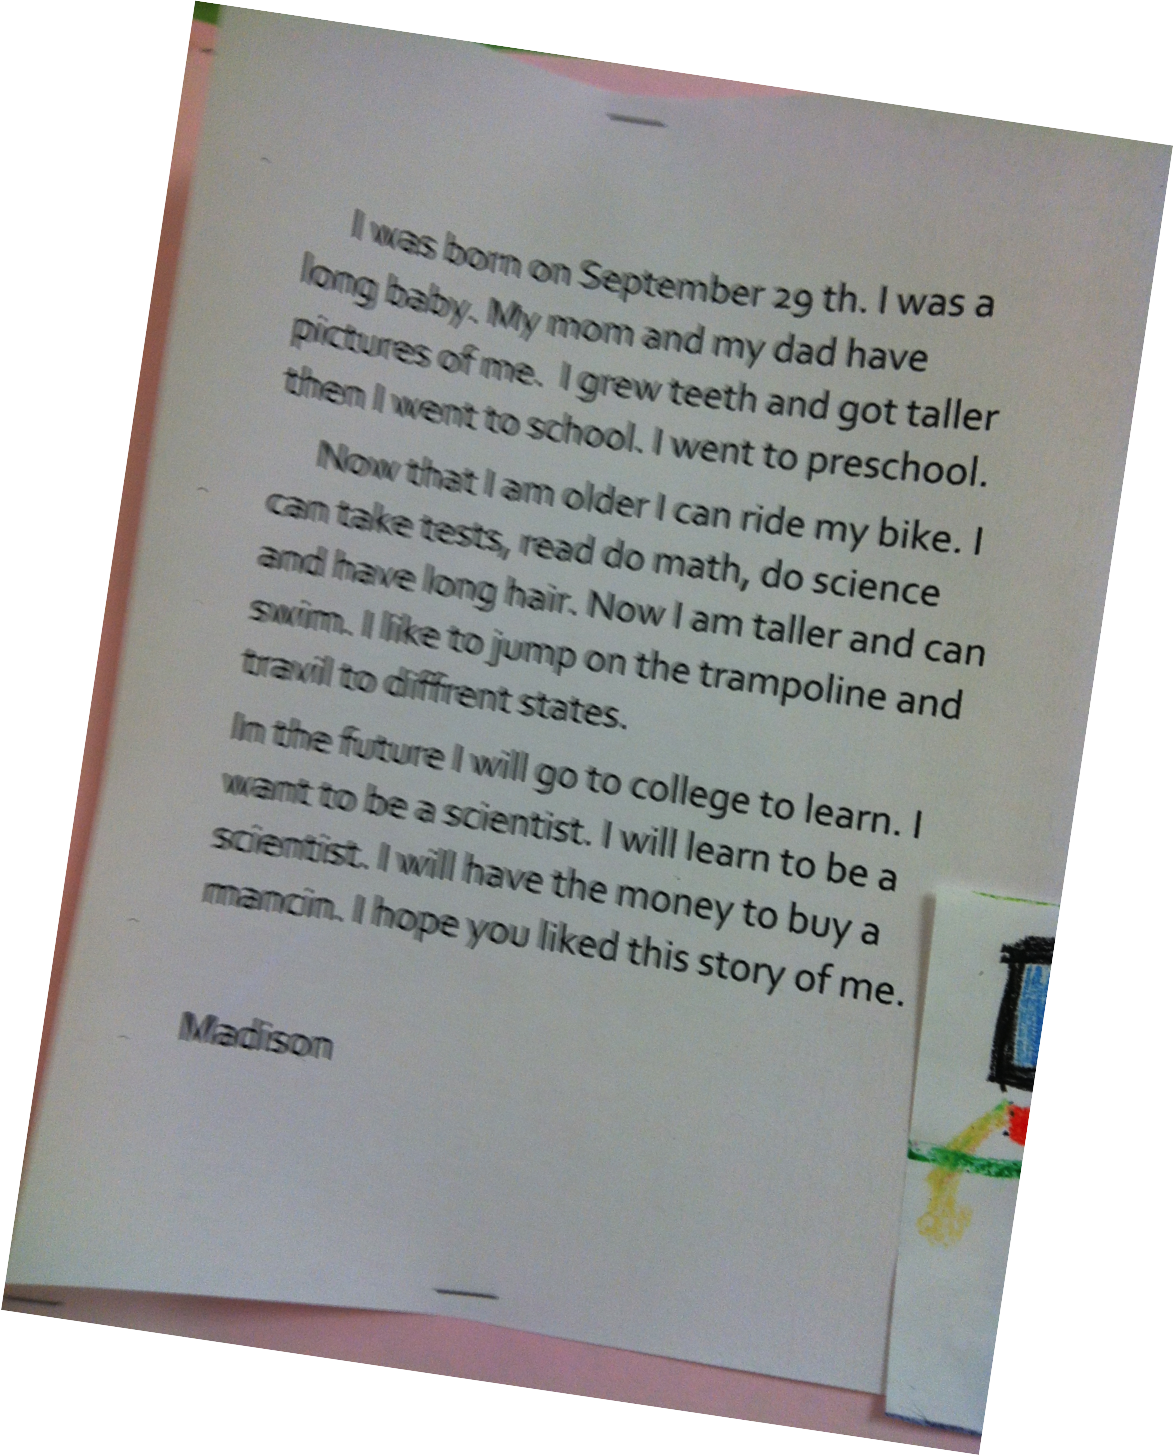 I was born on September 29 th. I was a
long baby. My mom and my dad have
pictures of me. I grew teeth and got taller
then I went to school. I went to preschool.
Now that I am older I can ride my bike. I
can take tests, read do math, do science
and have long hair. Now I am taller and can
swim. I like to jump on the trampoline and
travil to diffrent states.
In the future I will go to college to learn. I
want to be a scientist. I will learn to be a
scientist. I will have the money to buy a
mancin. I hope you liked this story of me.
Madison